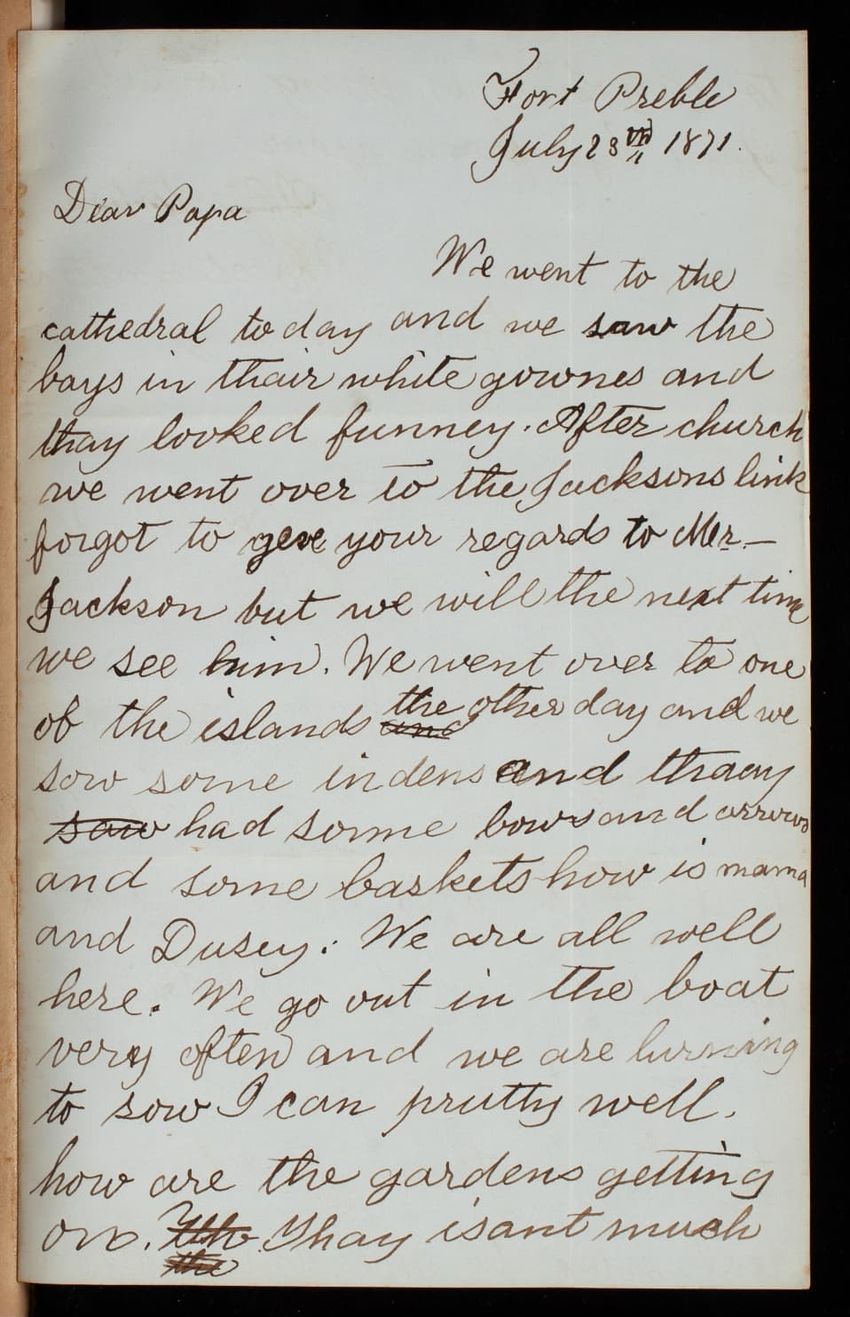 Fort Preble
July 23rd 1871.
Dear Papa
We went to the
cathedral to day and we saw the
boys in thair white gownes and
thay looked funney. After church
we went over to the Jacksons
forgot to geve your regards to Mr.
Jackson but we will the next time
we see him. We went over to one
of the islands and the other day and we
sow some indens and thaay
saw had some bows and arrows
and some baskets how is mama
and Dusey. We are all well
here. We go out in the boat
very often and we are lurning
to sow I can prutty well.
how are the gardens getting
on. Thay isant much